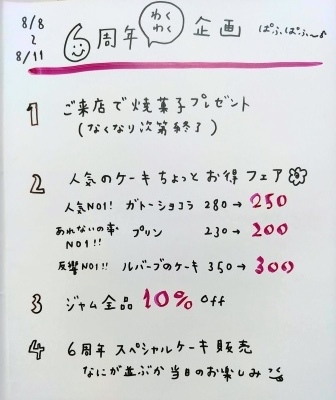 8/8
〜
8/11
6周年 わくわく 企画 ぱふぱふ〜♪
1 ご来店で焼菓子プレゼント
(なくなり次第終了)
2 人気のケーキちょっとお得フェア
人気NO1! ガトーショコラ 280→250
あれないの?率NO1!! プリン 230→200
反響NO1!! ルバーブのケーキ 350→300
3 ジャム全品 10% Off
4 6周年 スペシャルケーキ販売
なにが並ぶか当日のお楽しみ